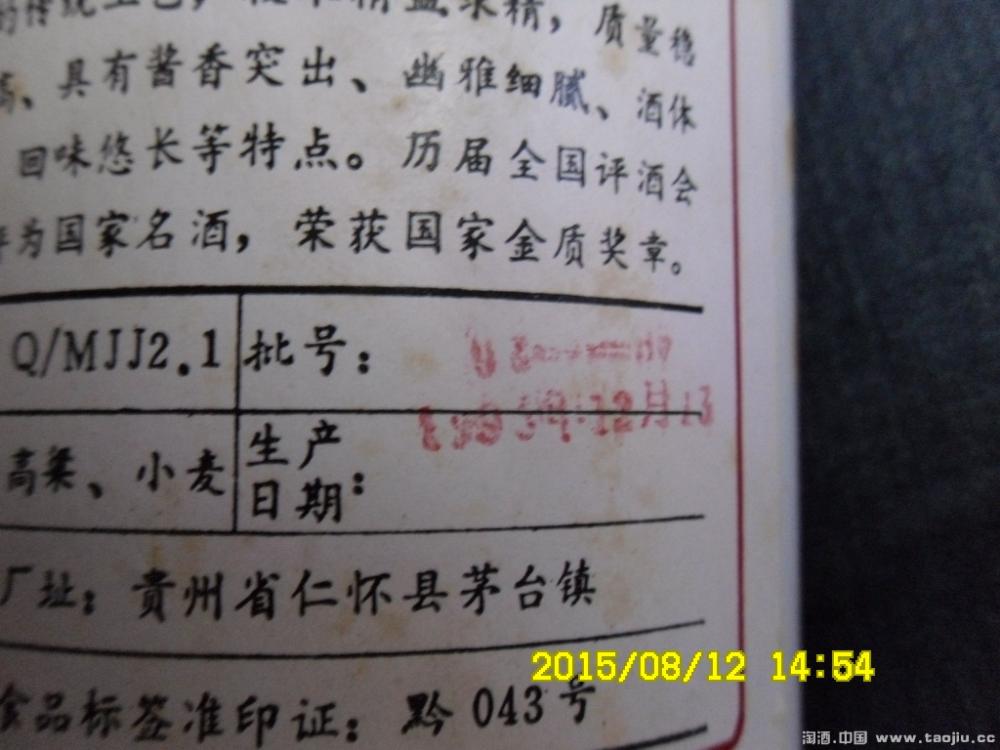 质量稳
、具有酱香突出、幽雅细腻、酒体
回味悠长等特点。历届全国评酒会
为国家名酒，荣获国家金质奖章。
Q/MJJ2.1 批号：
12月13
高粱、小麦 生产日期：
厂址：貴州省仁怀县茅台镇
2015/08/12 14:54
食品标签准印证：黔043号
淘酒.中国 www.taojiu.cc